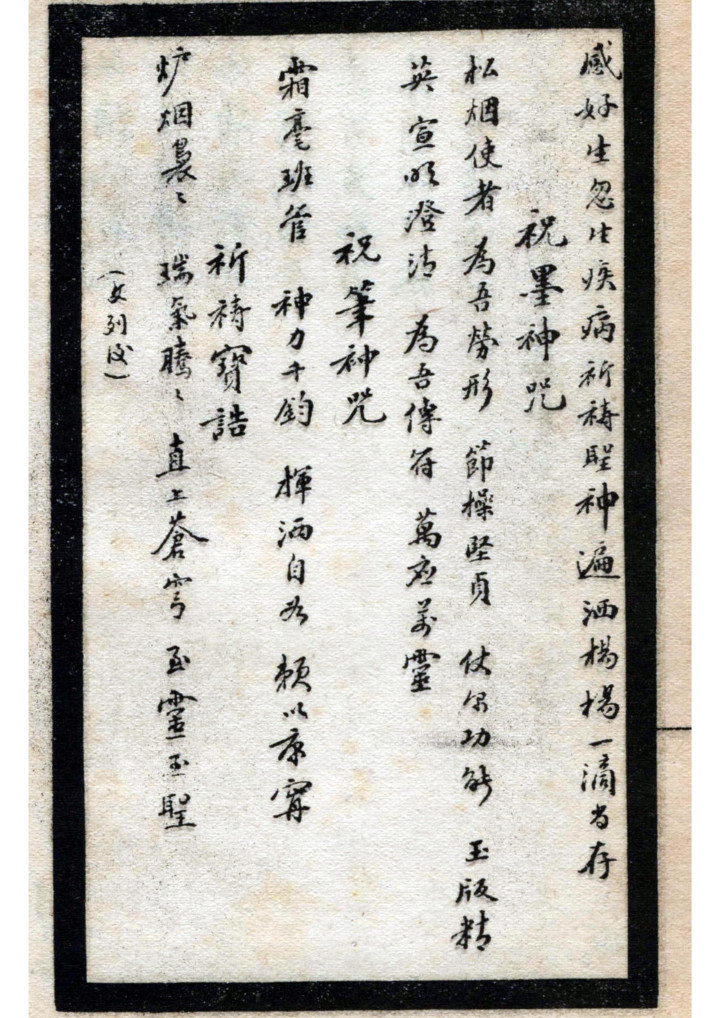 感好生忽生疾病祈祷聖神遍洒楊楊一滴尚存
祝墨神咒
松烟使者 為吾勞形 節操堅貞 仗尔功能 玉版精
英 宣明澄清 為吾傳符 萬应萬靈
祝筆神咒
霜毫班管 神力千鈞 揮洒自如 赖以康寧
祈祷寶誥
炉烟裊〻 瑞氣騰〻 直上蒼穹 至靈至聖
(文列後)